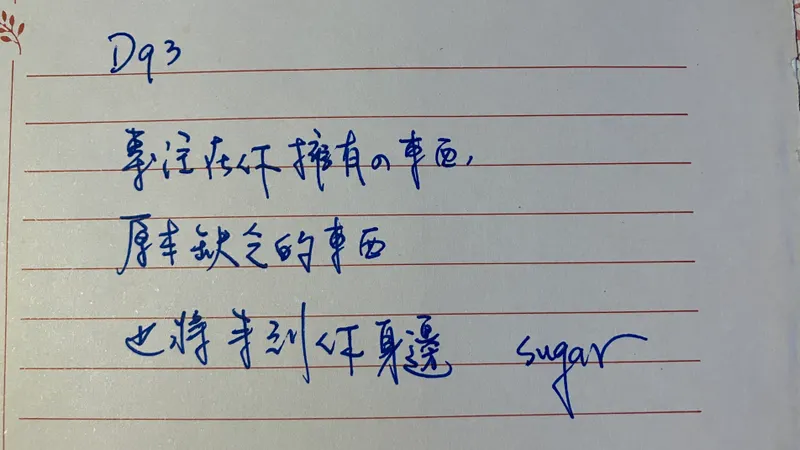 D93
專注在你擁有の東西,
原本缺乏的東西
也將來到你身邊 sugar